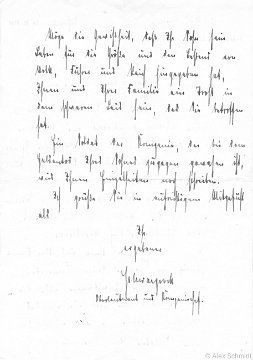 Möge die Gewißheit, daß Ihr Sohn sein
Leben für die Größe und den Bestand von
Volk, Führer und Reich hingegeben hat,
Ihnen und Ihrer Familie ein Trost in
dem schweren Leid sein, das Sie betroffen
hat.
Ein Soldat der Kompanie, der bei dem
Heldentod Ihres Sohnes zugegen gewesen ist,
wird Ihnen Einzelheiten noch schreiben.
Ich grüße Sie in aufrichtigem Mitgefühl
als
Ihr
ergebener
Oberleutnant und Kompaniechef.
© Alex Schmidt